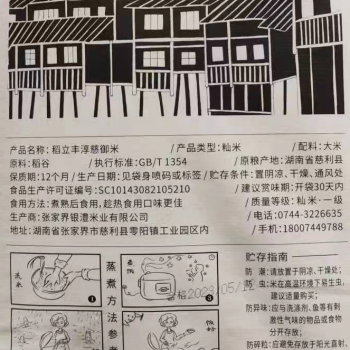 产品名称：稻立丰淳慈御米 / 产品类型：籼米 / 配料：大米
原料：稻谷 / 执行标准：GB/T 1354 / 原粮产地：湖南省慈利县
保质期：12个月 / 生产日期：见袋身喷码或标签 / 贮存条件：置阴凉、干燥、通风处
食品生产许可证编号：SC10143082105210 / 建议赏味期：开袋30天内
食用方法：煮熟后食用，趁热食用口味更佳 / 质量等级：籼米·一级
生产商：张家界银澧米业有限公司 / 电话：0744-3226635
地址：湖南省张家界市慈利县零阳镇工业园区内 / 手机：18007449788
贮存指南
防 潮：请放置于阴凉、干燥处；
防 虫：米在高温环境下易生虫，
建议适量购买；
防异味：应与洗涤剂、鱼等有刺
激性气味的物品或食物
分开存放；
防碎粒：应避免存放于阳光直射、
蒸煮方法参考
洗米
1
3
2023/05/12